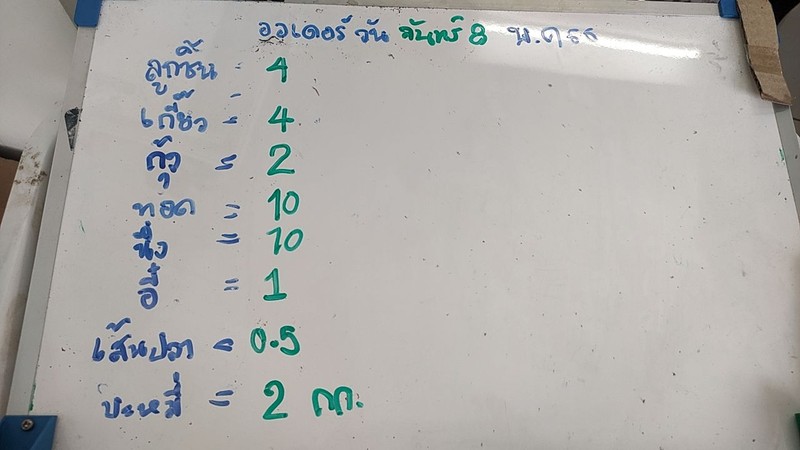 ออเดอร์ วัน จันทร์ 8 พ.ค 66
ลูกชิ้น = 4
เกี๊ยว = 4
กุ้ง = 2
ทอด = 10
นึ่ง = 10
อี๋ = 1
เส้นปลา = 0.5
บะหมี่ = 2 กก.